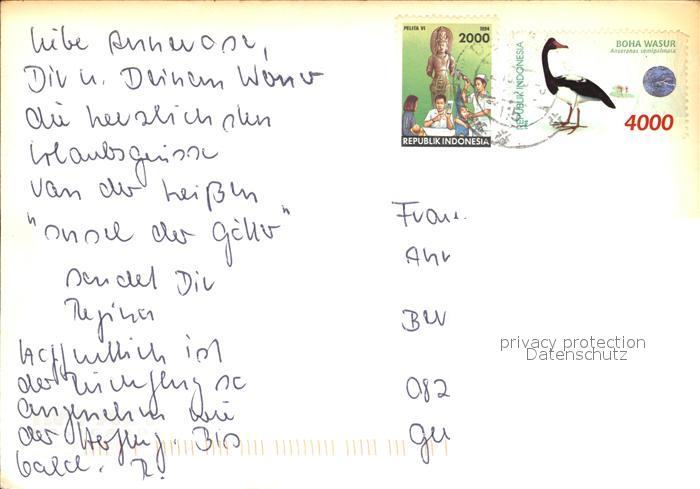 Liebe Annerose,
Dir u. Deinem Werner
die herzlichsten
Urlaubsgrüsse
von der heißen
"Insel der Götter"
sendet Dir
Regina
Hoffentlich ist
der Rückflug so
angenehm wie
der Hinflug. Bis
bald. R.
PELITA VI 1994
2000
REPUBLIK INDONESIA
REPUBLIK INDONESIA
BOHA WASUR
Anseranas semipalmata
4000
Frau
082
privacy protection
Datenschutz